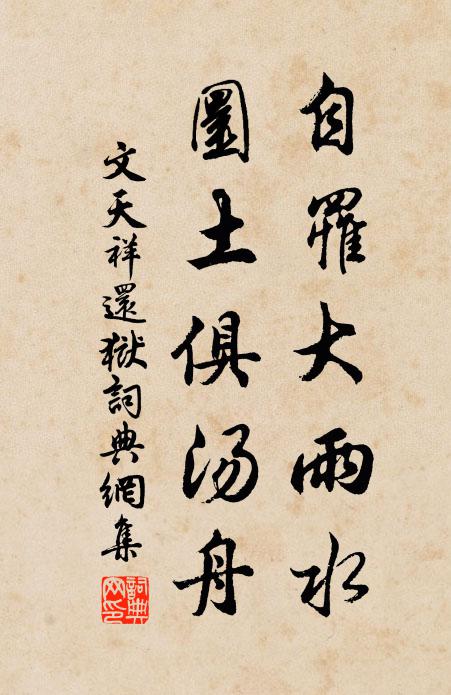 自罹大雨水
圜土俱湯舟
文天祥還獄詞典網集
詞典网印